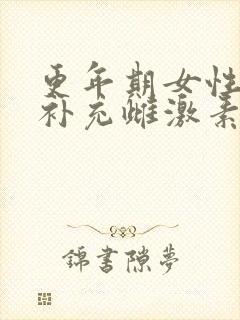 更年期女性
补充雌激素
锦书隙梦